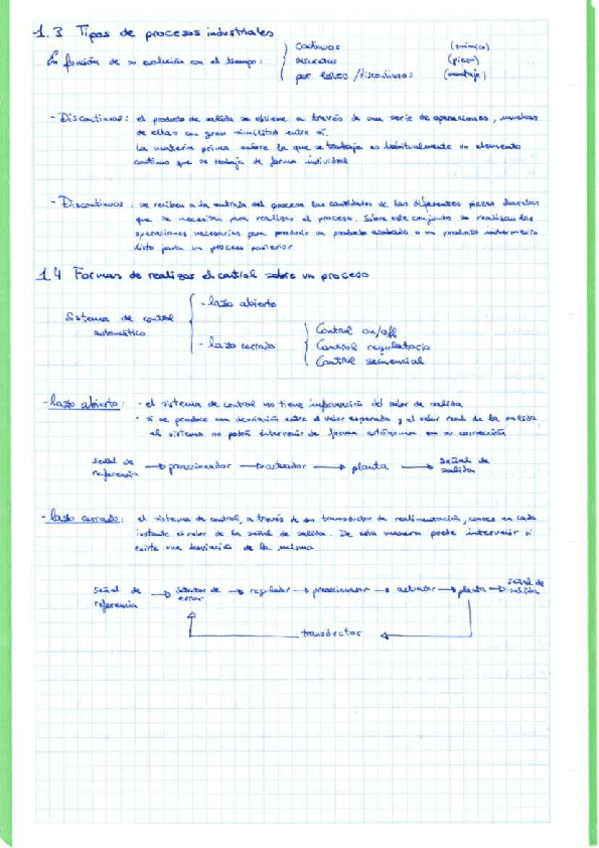 1.3 Tipos de procesos industriales
En función de su evolución con el tiempo: continuos (química)
discretos (piezas)
por lotes / discontinuos (montaje)
- Discontinuos: el producto de salida se obtiene a través de una serie de operaciones, muchas
de ellas con gran similitud entre sí.
La materia prima sobre la que se trabaja es habitualmente un elemento
continuo que se trabaja de forma individual
- Discontinuos: se reciben a la entrada del proceso las cantidades de las diferentes piezas discretas
que se necesitan para realizar el proceso. Sobre este conjunto se realizan las
operaciones necesarias para producir un producto acabado o un producto intermedio
listo para un proceso posterior
1.4 Formas de realizar el control sobre un proceso
Sistema de control automático
- lazo abierto
- lazo cerrado
Control on/off
Control regulatorio
Control secuencial
- lazo abierto: · el sistema de control no tiene información del valor de salida
· si se produce una desviación entre el valor esperado y el valor real de la salida
el sistema no podrá intervenir de forma autónoma en su corrección
señal de referencia → preaccionador → actuador → planta → señal de salida
- lazo cerrado: el sistema de control, a través de un transductor de realimentación, conoce en cada
instante el valor de la señal de salida. De esta manera puede intervenir si
existe una desviación de la misma
señal de referencia → detector de error → regulador → preaccionador → actuador → planta → señal de salida
transductor